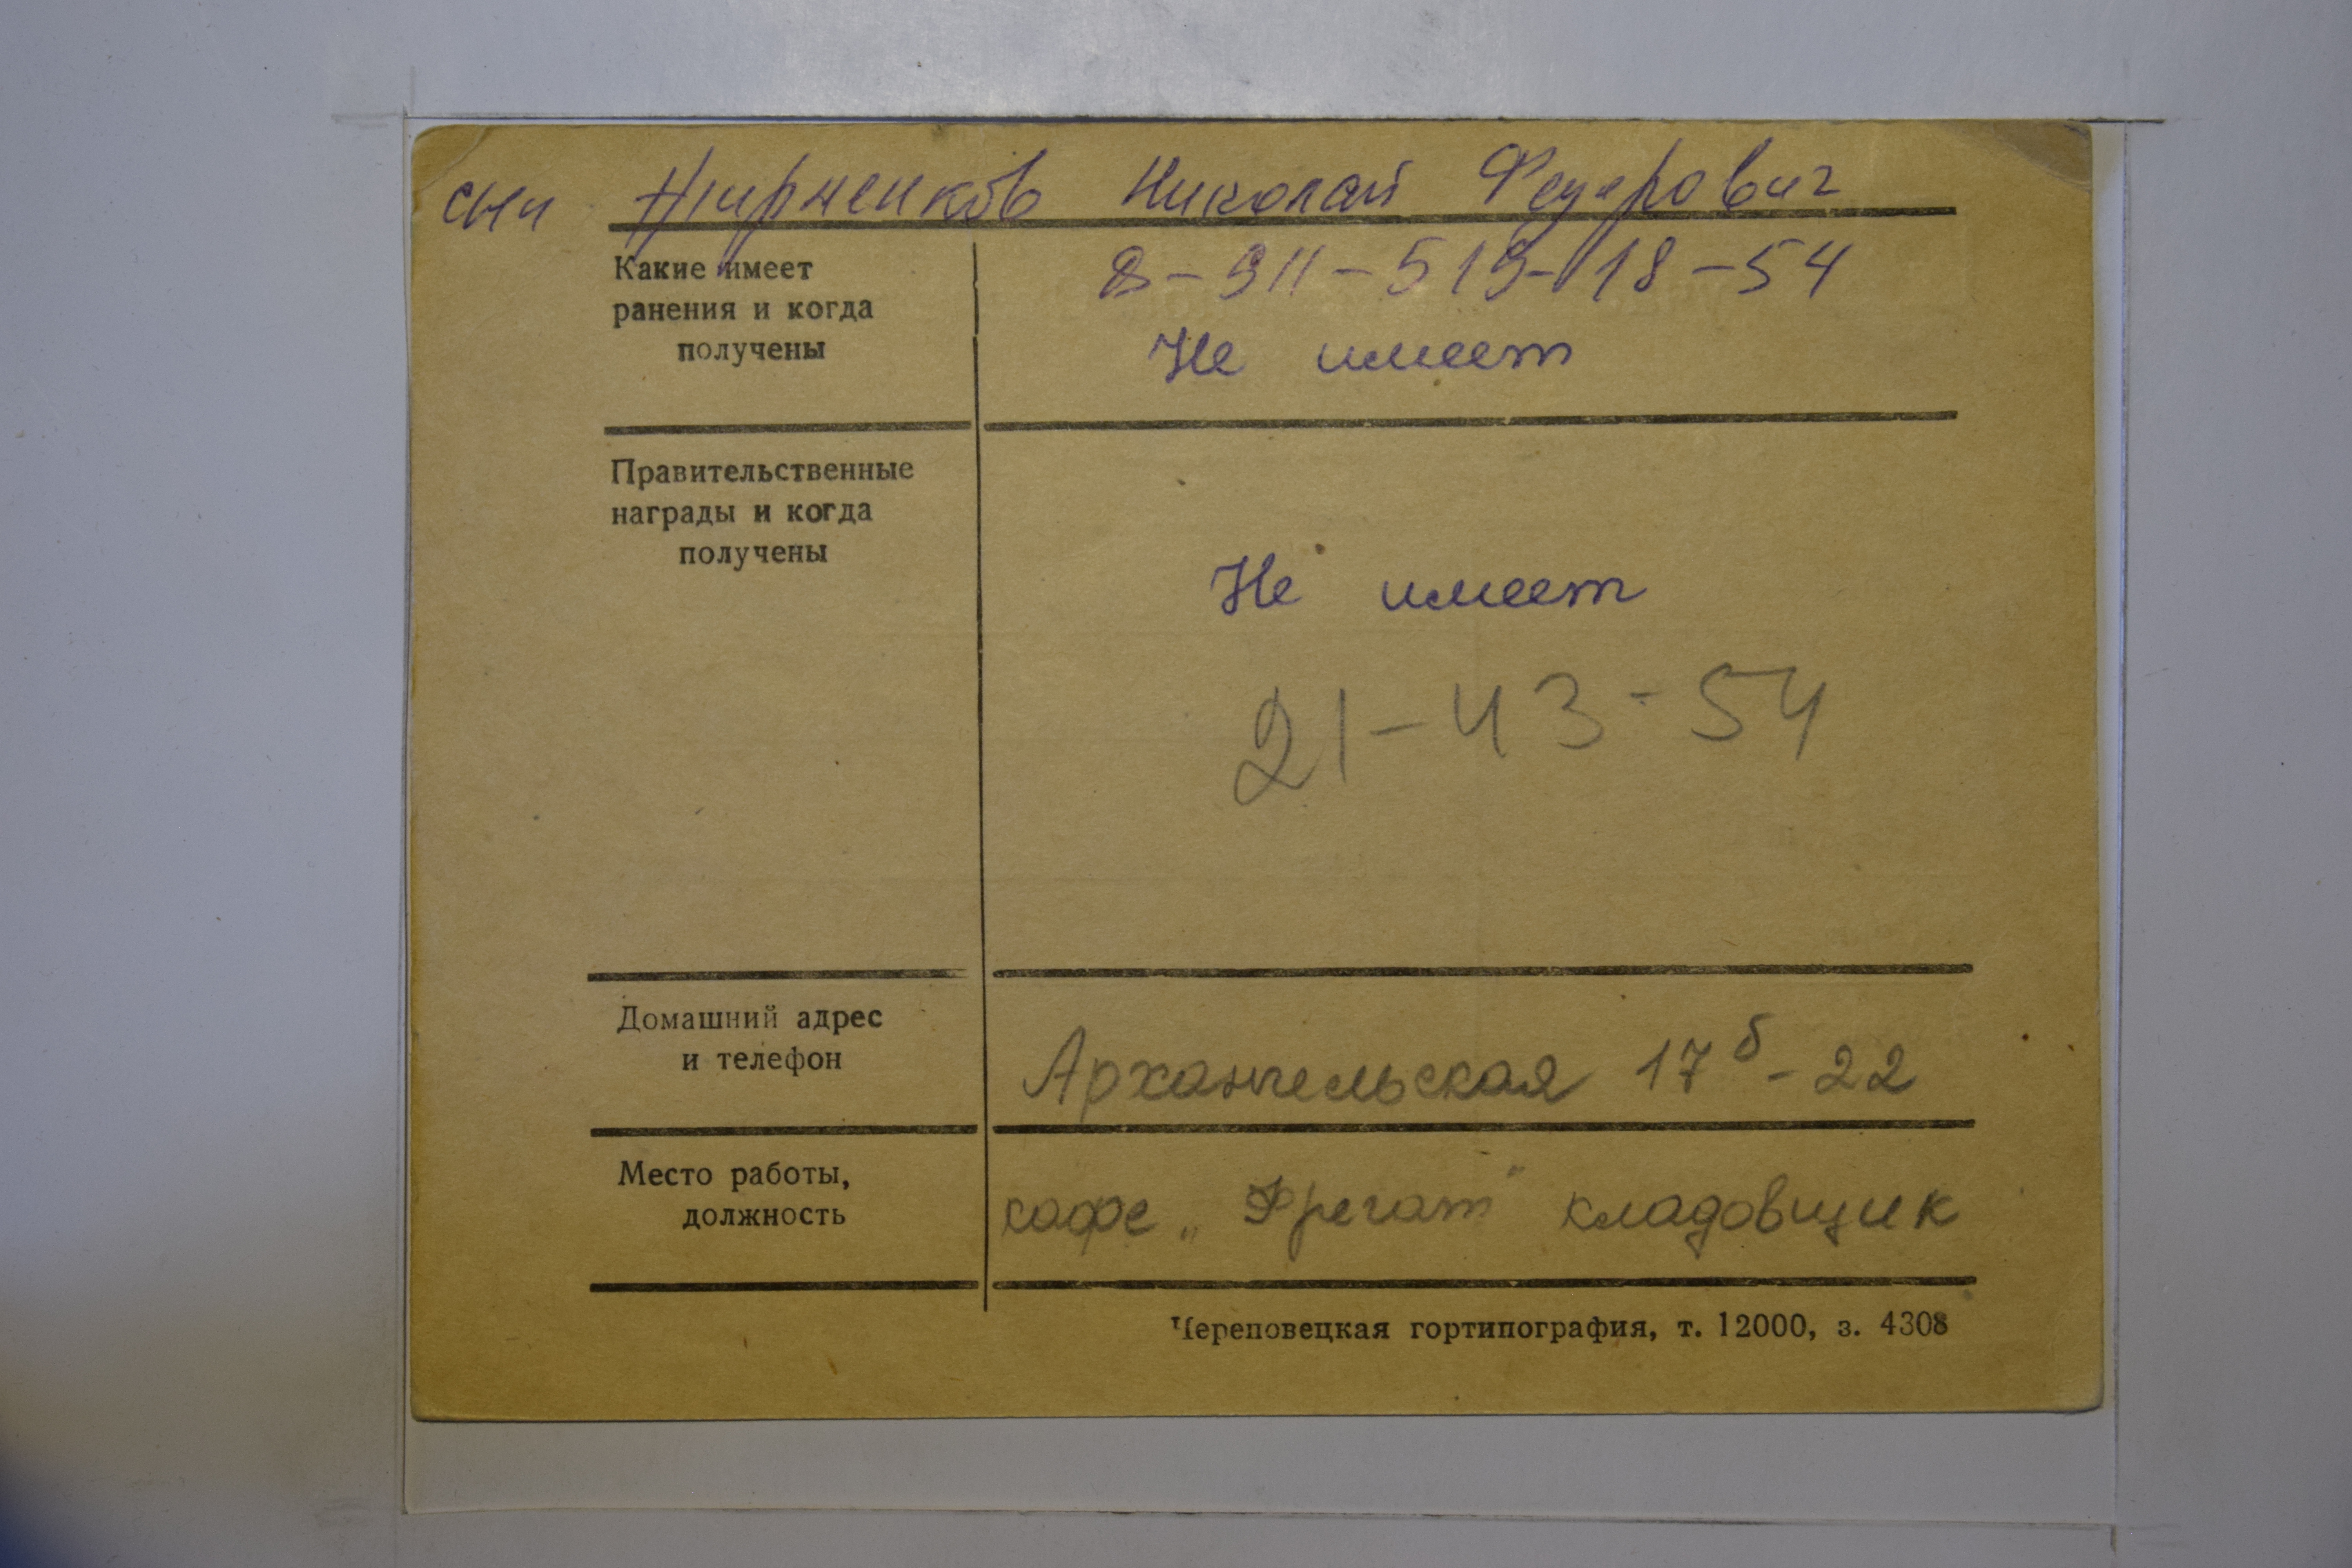 сын Жирненков Николай Федерович
Какие имеет
ранения и когда
получены
8-911-519-18-54
Не имеет
Правительственные
награды и когда
получены
Не имеет
21-43-54
Домашний адрес
и телефон
Архангельская 17б-22
Место работы,
должность
кафе „Фрегат" кладовщик
Череповецкая гортипография, т. 12000, з. 4308